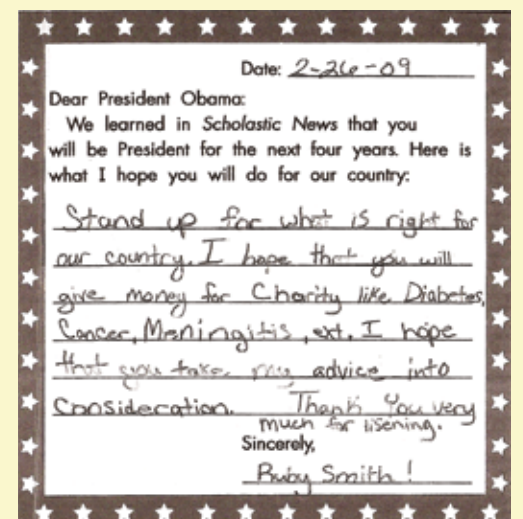 Date: 2-26-09
Dear President Obama:
We learned in Scholastic News that you
will be President for the next four years. Here is
what I hope you will do for our country:
Stand up for what is right for
our country. I hope that you will
give money for Charity like Diabetes,
Cancer, Meningitis, ext. I hope
that you take my advice into
Consideration. Thank You very
much for lisening.
Sincerely,
Ruby Smith!